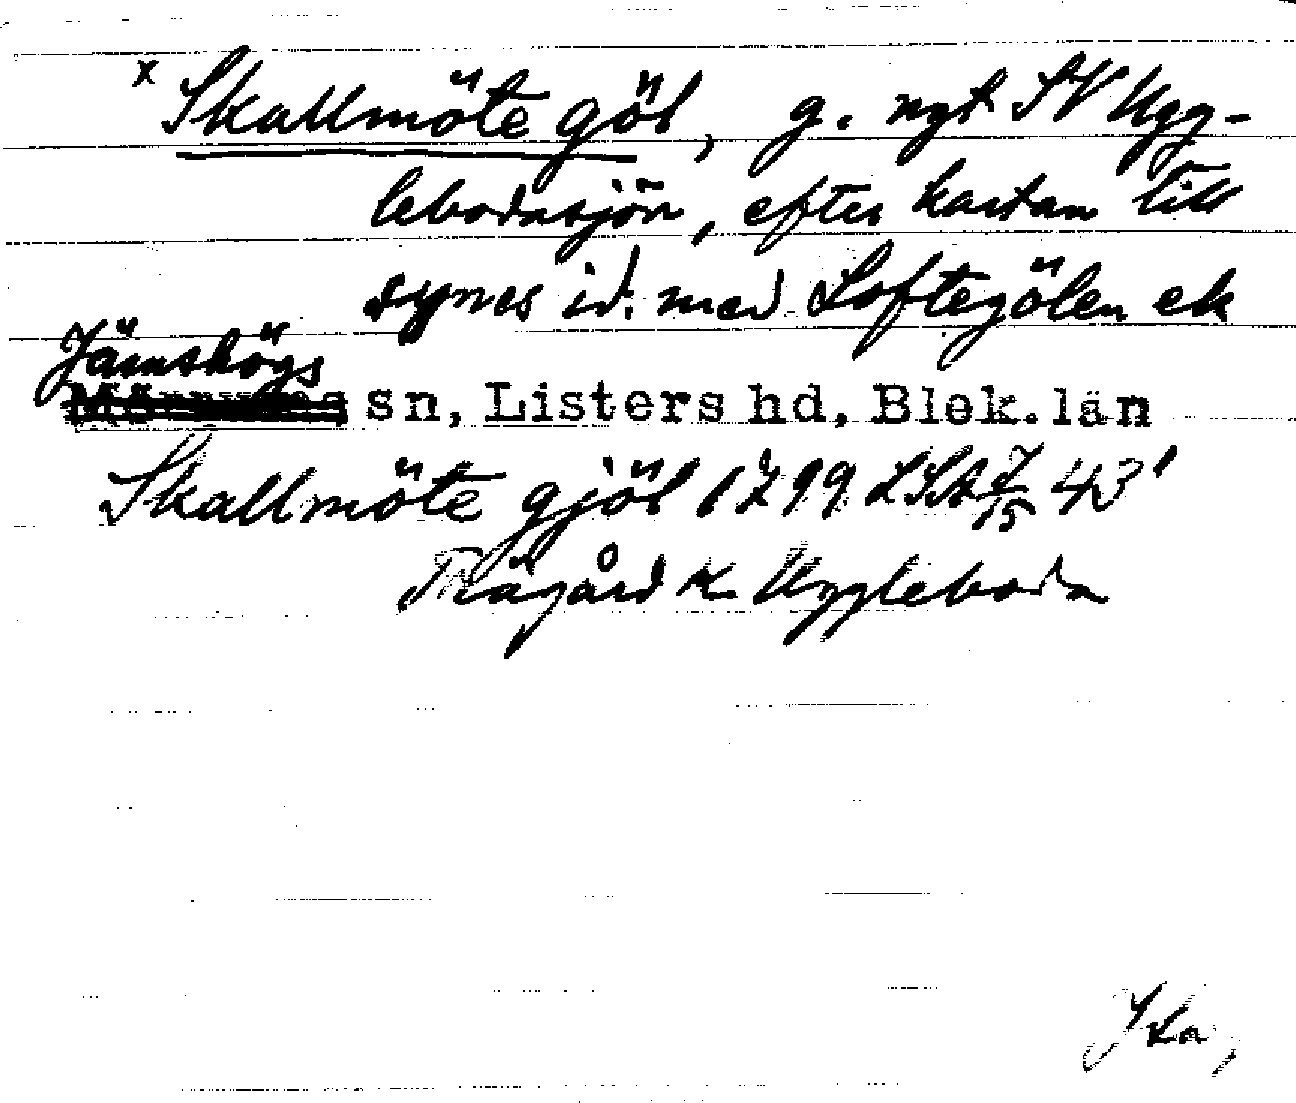 x Skallmöte göl, g. ngt SV Ugg-
lebodasjön, efter kartan till
synes id. med Loftegölen ek
Jämshögs
sn, Listers hd, Blek. län
Skallmöte gjöl 1799 LSA 43'
Trägård t. Uggleboda